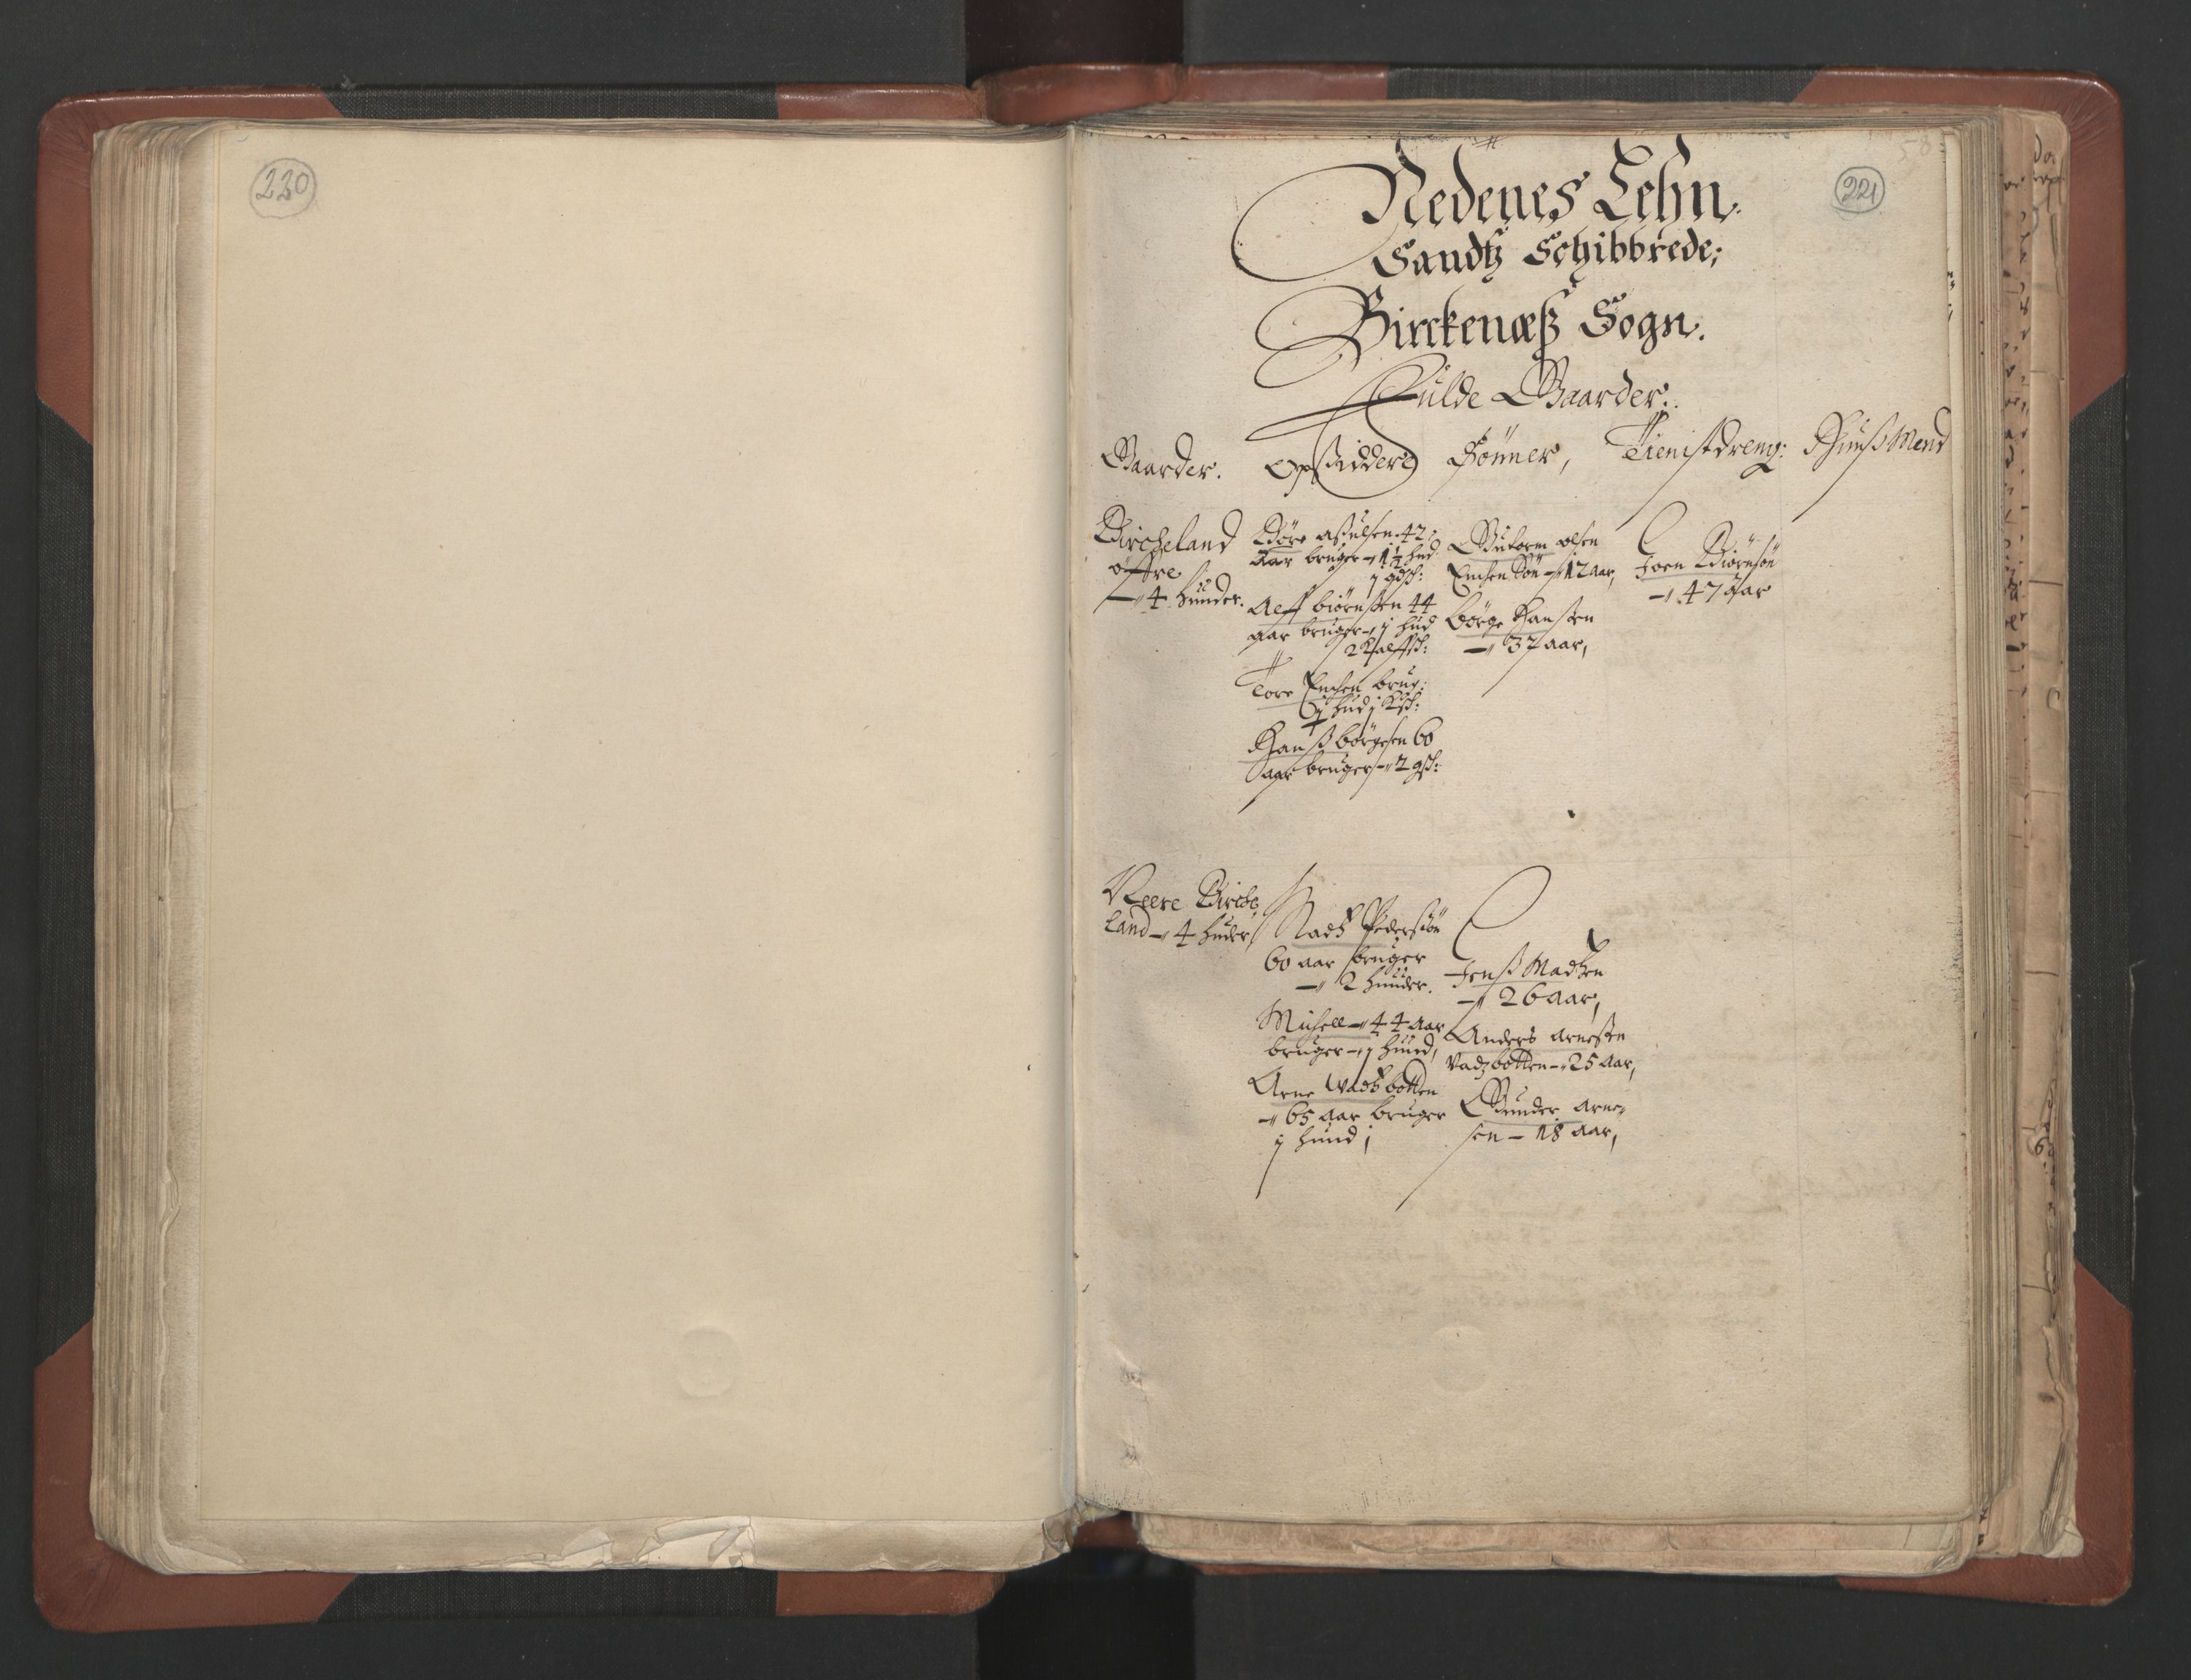 220
221
58
Nedenes Lehn.
Sandtz Schibbrede;
Birckenæß Sogn.
Fulde Gaarder:
Gaarder. Opsidder Sønner, Tienistdreng: Hûuß Mend
Bircheland
øffre
4 hûuder.
Børe Aßulsen 42
aar brûger 1½ hud
j gdsch:
Aleff biørnssen 44
aar brûger j hud
2 Kalffsch:
Tore Enersen brug:
j hud j Ksch:
Hanß børgesen 60
aar brûger 2 gsch:
Gutorm olsen
Søn 12 aar,
børge Hanssen
37 aar,
Joen Biørnsøn
47 aar
Neere Birche
land 4 huder
Madtz Pederssøn
60 aar brûger
2 hûuder.
Michell 44 aar
brûger j hûud,
Arne Wadtzbotten
65 aar brûger
j hûud j
Jenß Madtzen
26 aar,
Anders arnessen
Vadzbotten 25 aar,
Gunder arne
sen 18 aar,